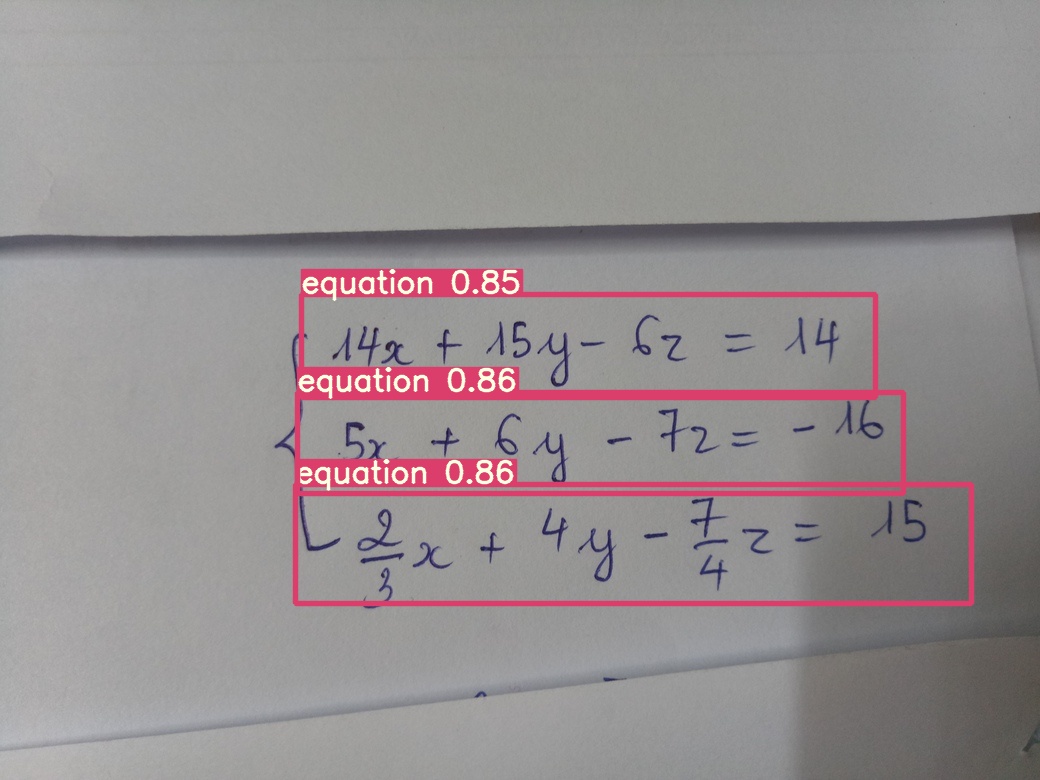 equation 0.85
14x + 15y - 6z = 14
equation 0.86
5x + 6y - 7z = - 16
equation 0.86
2/3 x + 4y - 7/4 z = 15